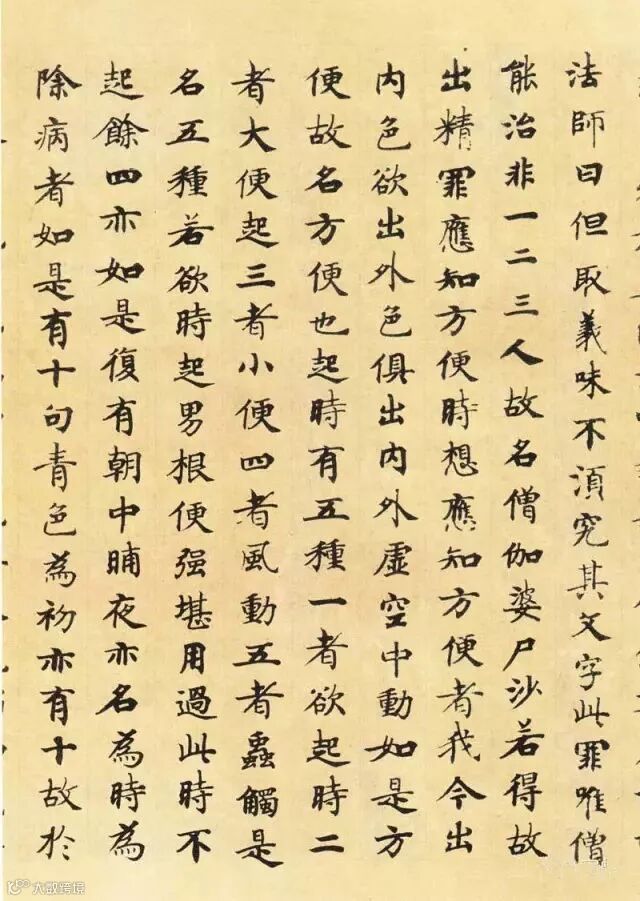 法師曰但取義味不湏究其文字此罪唯僧
能治非一二三人故名僧伽婆尸沙若得故
出精罪應知方便時想應知方便者我今出
内色欲出外色俱出内外虛空中動如是方
便故名方便也起時有五種一者欲起時二
者大便起三者小便四者風動五者蟲觸是
名五種若欲時起男根便强堪用過此時不
起餘四亦如是復有朝中晡夜亦名為時為
除病者如是有十句青色為初亦有十故於
大数跨境